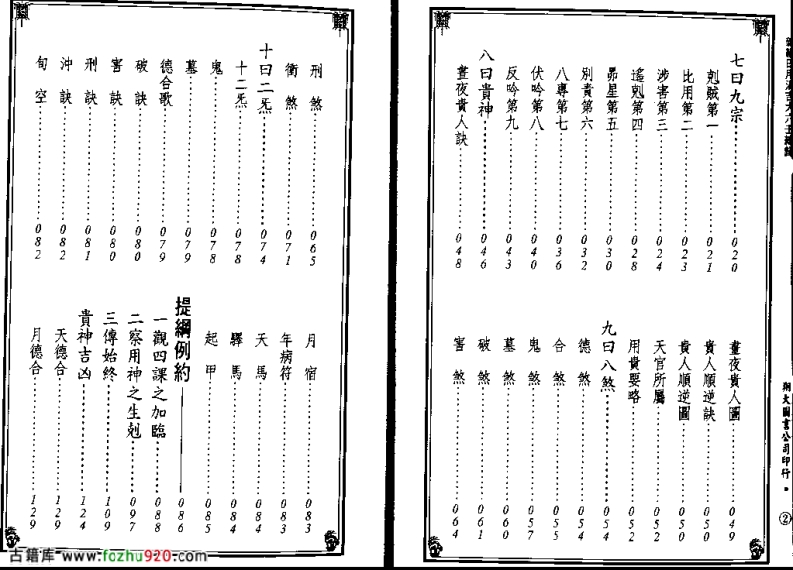 翔大圖書公司印行
②
七曰九宗…………020
剋賊第一…………021
比用第二…………023
涉害第三…………024
遙剋第四…………028
昴星第五…………030
別責第六…………032
八專第七…………036
伏吟第八…………040
反吟第九…………043
八曰貴神…………046
晝夜貴人訣…………048
晝夜貴人圖…………049
貴人順逆訣…………050
貴人順逆圖…………050
天官所屬…………052
用貴要略…………052
九曰八煞…………054
德煞…………054
合煞…………055
鬼煞…………057
墓煞…………060
破煞…………061
害煞…………064
刑煞…………065
衝煞…………071
十曰二炁…………074
十二炁…………078
鬼…………078
墓…………079
德合歌…………079
破訣…………080
害訣…………080
刑訣…………081
沖訣…………082
旬空…………082
月宿…………083
年病符…………083
天馬…………084
驛馬…………084
起甲…………085
提綱例約————086
一觀四課之加臨…………088
二察用神之生剋…………097
三傳始終…………109
貴神吉凶…………124
天德合…………129
月德合…………129
古籍库 www.fozhu920.com